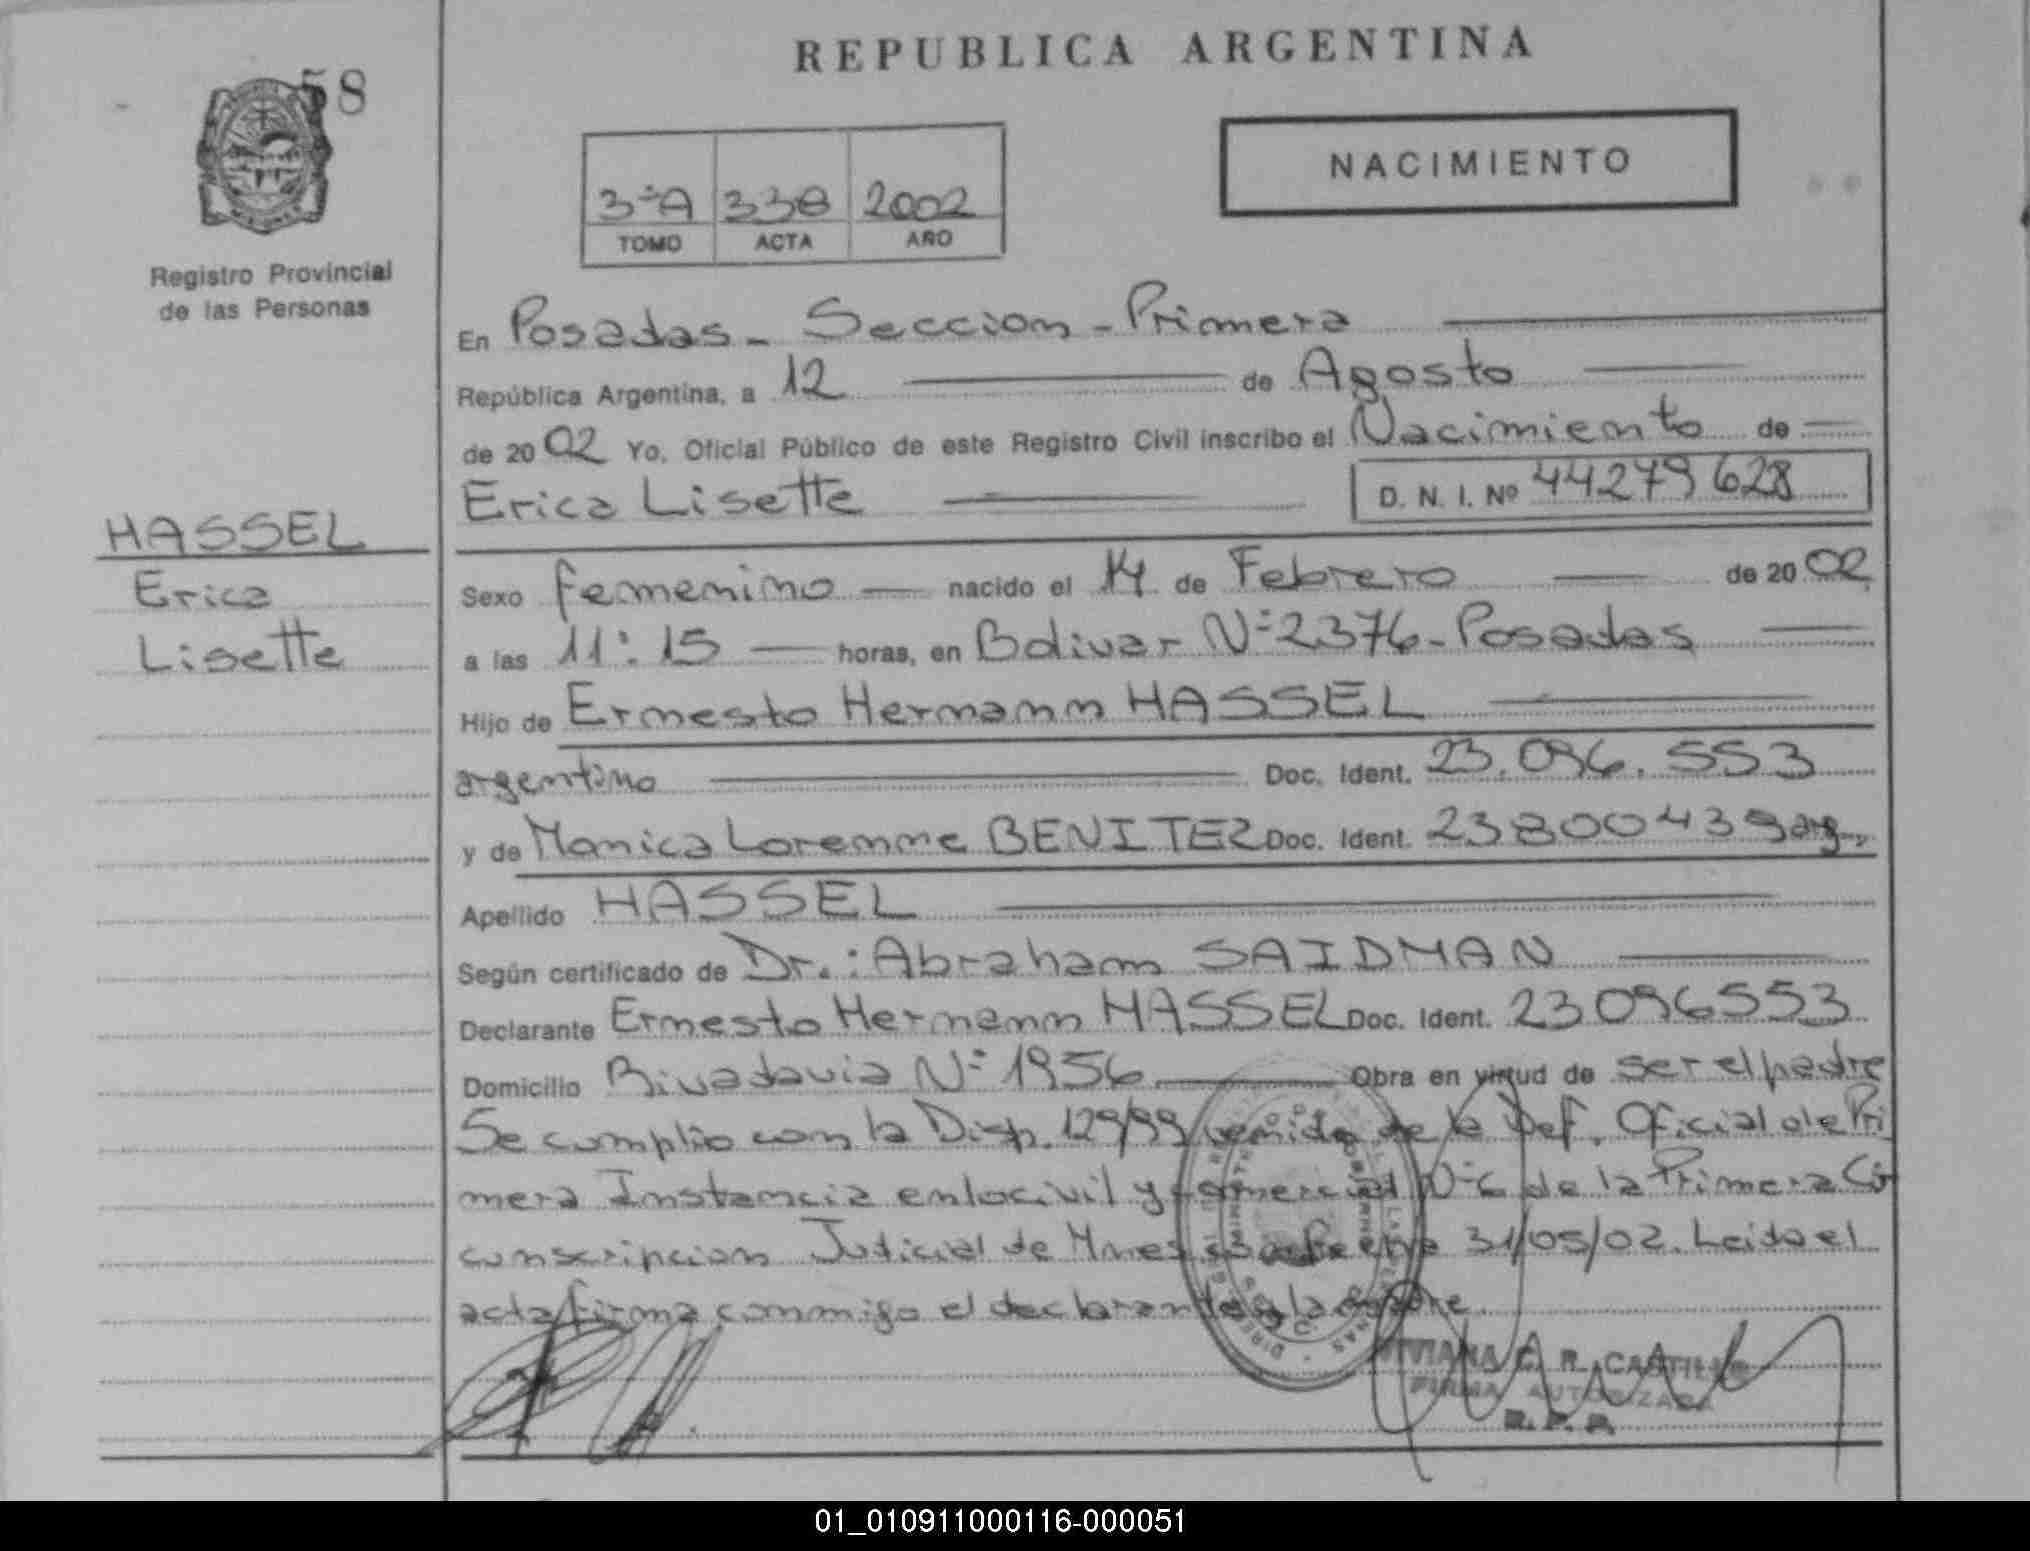 REPUBLICA ARGENTINA
58
NACIMIENTO
3ºA 338 2002
TOMO ACTA AÑO
Registro Provincial
de las Personas
En Posadas - Seccion - Primera
República Argentina, a 12 de Agosto
de 2002 Yo, Oficial Público de este Registro Civil inscribo el Nacimiento de
Erica Lisette D. N. I. Nº 44279628
HASSEL
Erica
Lisette
Sexo femenino nacido el 14 de Febrero de 2002
a las 11:15 horas, en Bolivar Nº 2376 - Posadas
Hijo de Ernesto Hermann HASSEL
argentino Doc. Ident. 23.096.553
y de Monica Lorenne BENITEZ Doc. Ident. 23800439 arg.
Apellido HASSEL
Según certificado de Dr.: Abraham SAIDMAN
Declarante Ernesto Hermann HASSEL Doc. Ident. 23096553
Domicilio Rivadavia Nº 1956 Obra en virtud de ser el padre
Se cumplio con la Disp. 129/99 venida de la Def. Oficial de Pri
mera Instancia en lo civil y comercial Nº 6 de la Primera Cir
conscripcion Judicial de Mnes de fecha 31/05/02. Leida el
acta firma conmigo el declarante y la madre.
VIVIANA C. R. CASTILLO
FIRMA AUTORIZADA
R. P. P.
01_010911000116-000051